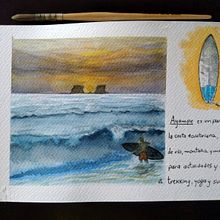 Ayampe es un para
la costa ecuatoriana,
de río, montaña y m
para actividades y
a trekking, yoga y su